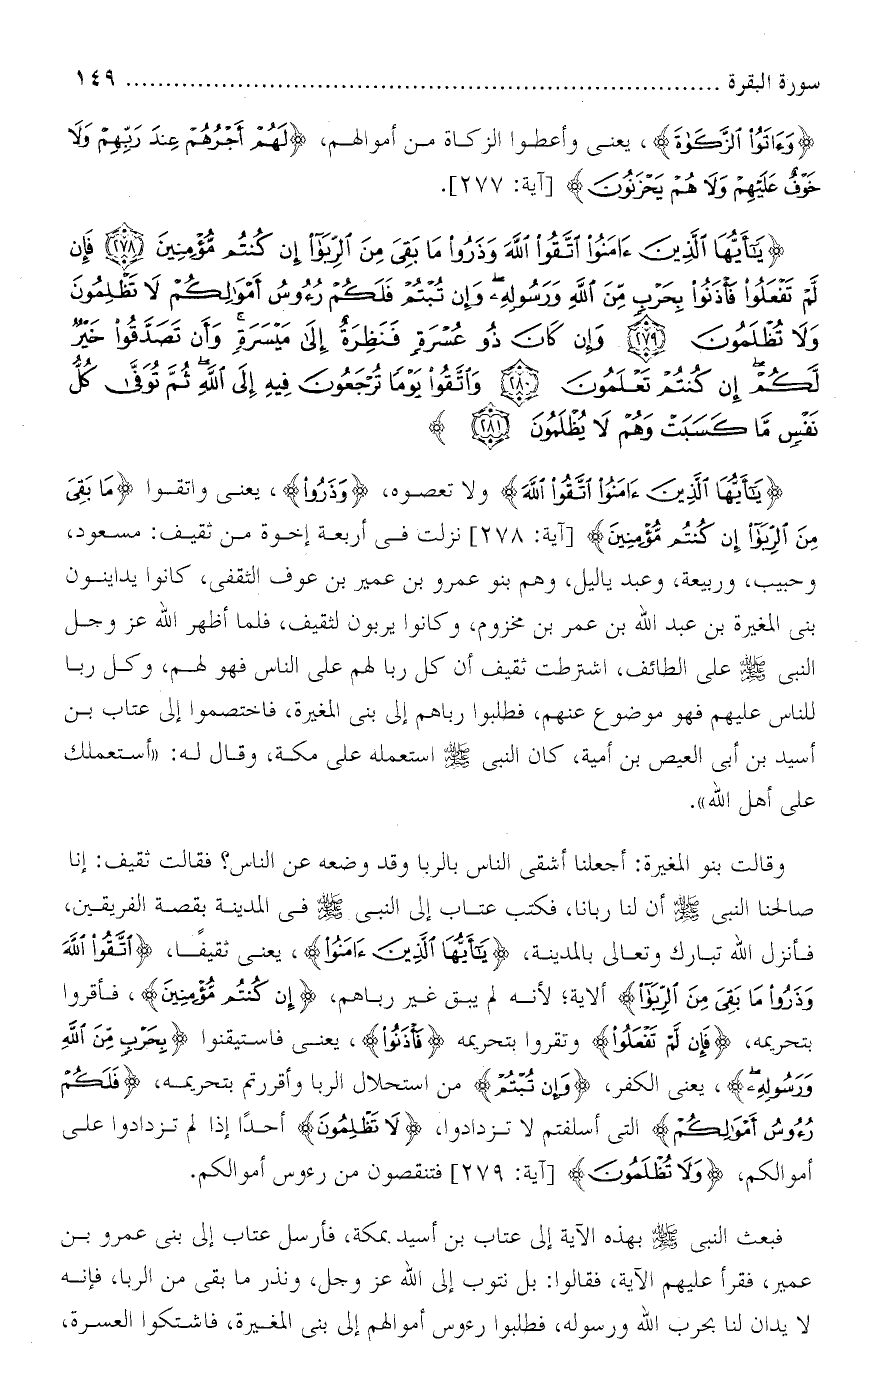 سورة البقرة ........................................................................... ١٤٩
﴿وَءَاتَوُا۟ ٱلزَّكَوٰةَ﴾، يعنى وأعطوا الزكاة من أموالهم، ﴿لَهُمْ أَجْرُهُمْ عِندَ رَبِّهِمْ وَلَا
خَوْفٌ عَلَيْهِمْ وَلَا هُمْ يَحْزَنُونَ﴾ [آية: ٢٧٧].
﴿يَٰٓأَيُّهَا ٱلَّذِينَ ءَامَنُوا۟ ٱتَّقُوا۟ ٱللَّهَ وَذَرُوا۟ مَا بَقِىَ مِنَ ٱلرِّبَوٰٓا۟ إِن كُنتُم مُّؤْمِنِينَ ٢٧٨ فَإِن
لَّمْ تَفْعَلُوا۟ فَأْذَنُوا۟ بِحَرْبٍ مِّنَ ٱللَّهِ وَرَسُولِهِۦ ۖ وَإِن تُبْتُمْ فَلَكُمْ رُءُوسُ أَمْوَٰلِكُمْ لَا تَظْلِمُونَ
وَلَا تُظْلَمُونَ ٢٧٩ وَإِن كَانَ ذُو عُسْرَةٍ فَنَظِرَةٌ إِلَىٰ مَيْسَرَةٍ ۚ وَأَن تَصَدَّقُوا۟ خَيْرٌ
لَّكُمْ ۖ إِن كُنتُمْ تَعْلَمُونَ ٢٨٠ وَٱتَّقُوا۟ يَوْمًا تُرْجَعُونَ فِيهِ إِلَى ٱللَّهِ ۖ ثُمَّ تُوَفَّىٰ كُلُّ
نَفْسٍ مَّا كَسَبَتْ وَهُمْ لَا يُظْلَمُونَ ٢٨١ ﴾
﴿يَٰٓأَيُّهَا ٱلَّذِينَ ءَامَنُوا۟ ٱتَّقُوا۟ ٱللَّهَ﴾ ولا تعصوه، ﴿وَذَرُوا۟﴾، يعنى واتقوا ﴿مَا بَقِىَ
مِنَ ٱلرِّبَوٰٓا۟ إِن كُنتُم مُّؤْمِنِينَ﴾ [آية: ٢٧٨] نزلت فى أربعة إخوة من ثقيف: مسعود،
وحبيب، وربيعة، وعبد ياليل، وهم بنو عمرو بن عمير بن عوف الثقفى، كانوا يداينون
بنى المغيرة بن عبد الله بن عمر بن مخزوم، وكانوا يربون لثقيف، فلما أظهر الله عز وجل
النبى ﷺ على الطائف، اشترطت ثقيف أن كل ربا لهم على الناس فهو لهم، وكل ربا
للناس عليهم فهو موضوع عنهم، فطلبوا رباهم إلى بنى المغيرة، فاختصموا إلى عتاب بن
أسيد بن أبى العيص بن أمية، كان النبى ﷺ استعمله على مكة، وقال له: «أستعملك
على أهل الله».
وقالت بنو المغيرة: أجعلنا أشقى الناس بالربا وقد وضعه عن الناس؟ فقالت ثقيف: إنا
صالحنا النبى ﷺ أن لنا ربانا، فكتب عتاب إلى النبى ﷺ فى المدينة بقصة الفريقين،
فأنزل الله تبارك وتعالى بالمدينة، ﴿يَٰٓأَيُّهَا ٱلَّذِينَ ءَامَنُوا۟﴾، يعنى ثقيفًا، ﴿ٱتَّقُوا۟ ٱللَّهَ
وَذَرُوا۟ مَا بَقِىَ مِنَ ٱلرِّبَوٰٓا۟﴾ ألاية؛ لأنه لم يبق غير رباهم، ﴿إِن كُنتُم مُّؤْمِنِينَ﴾، فأقروا
بتحريمه، ﴿فَإِن لَّمْ تَفْعَلُوا۟﴾ وتقروا بتحريمه ﴿فَأْذَنُوا۟﴾، يعنى فاستيقنوا ﴿بِحَرْبٍ مِّنَ ٱللَّهِ
وَرَسُولِهِۦ ۖ﴾، يعنى الكفر، ﴿وَإِن تُبْتُمْ﴾ من استحلال الربا وأقررتم بتحريمه، ﴿فَلَكُمْ
رُءُوسُ أَمْوَٰلِكُمْ﴾ التى أسلفتم لا تزدادوا، ﴿لَا تَظْلِمُونَ﴾ أحدًا إذا لم تزدادوا على
أموالكم، ﴿وَلَا تُظْلَمُونَ﴾ [آية: ٢٧٩] فتنقصون من رءوس أموالكم.
فبعث النبى ﷺ بهذه الآية إلى عتاب بن أسيد بمكة، فأرسل عتاب إلى بنى عمرو بن
عمير، فقرأ عليهم الآية، فقالوا: بل نتوب إلى الله عز وجل، ونذر ما بقى من الربا، فإنه
لا يدان لنا بحرب الله ورسوله، فطلبوا رءوس أموالهم إلى بنى المغيرة، فاشتكوا العسرة،